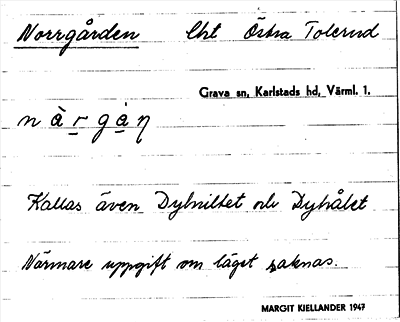 Norrgården Cht Östra Tolerud
Grava sn, Karlstads hd, Värml. l.
nàrgán
Kallas även och Dyhålet
Närmare uppgift om läget saknas.
MARGIT KJELLANDER 1947